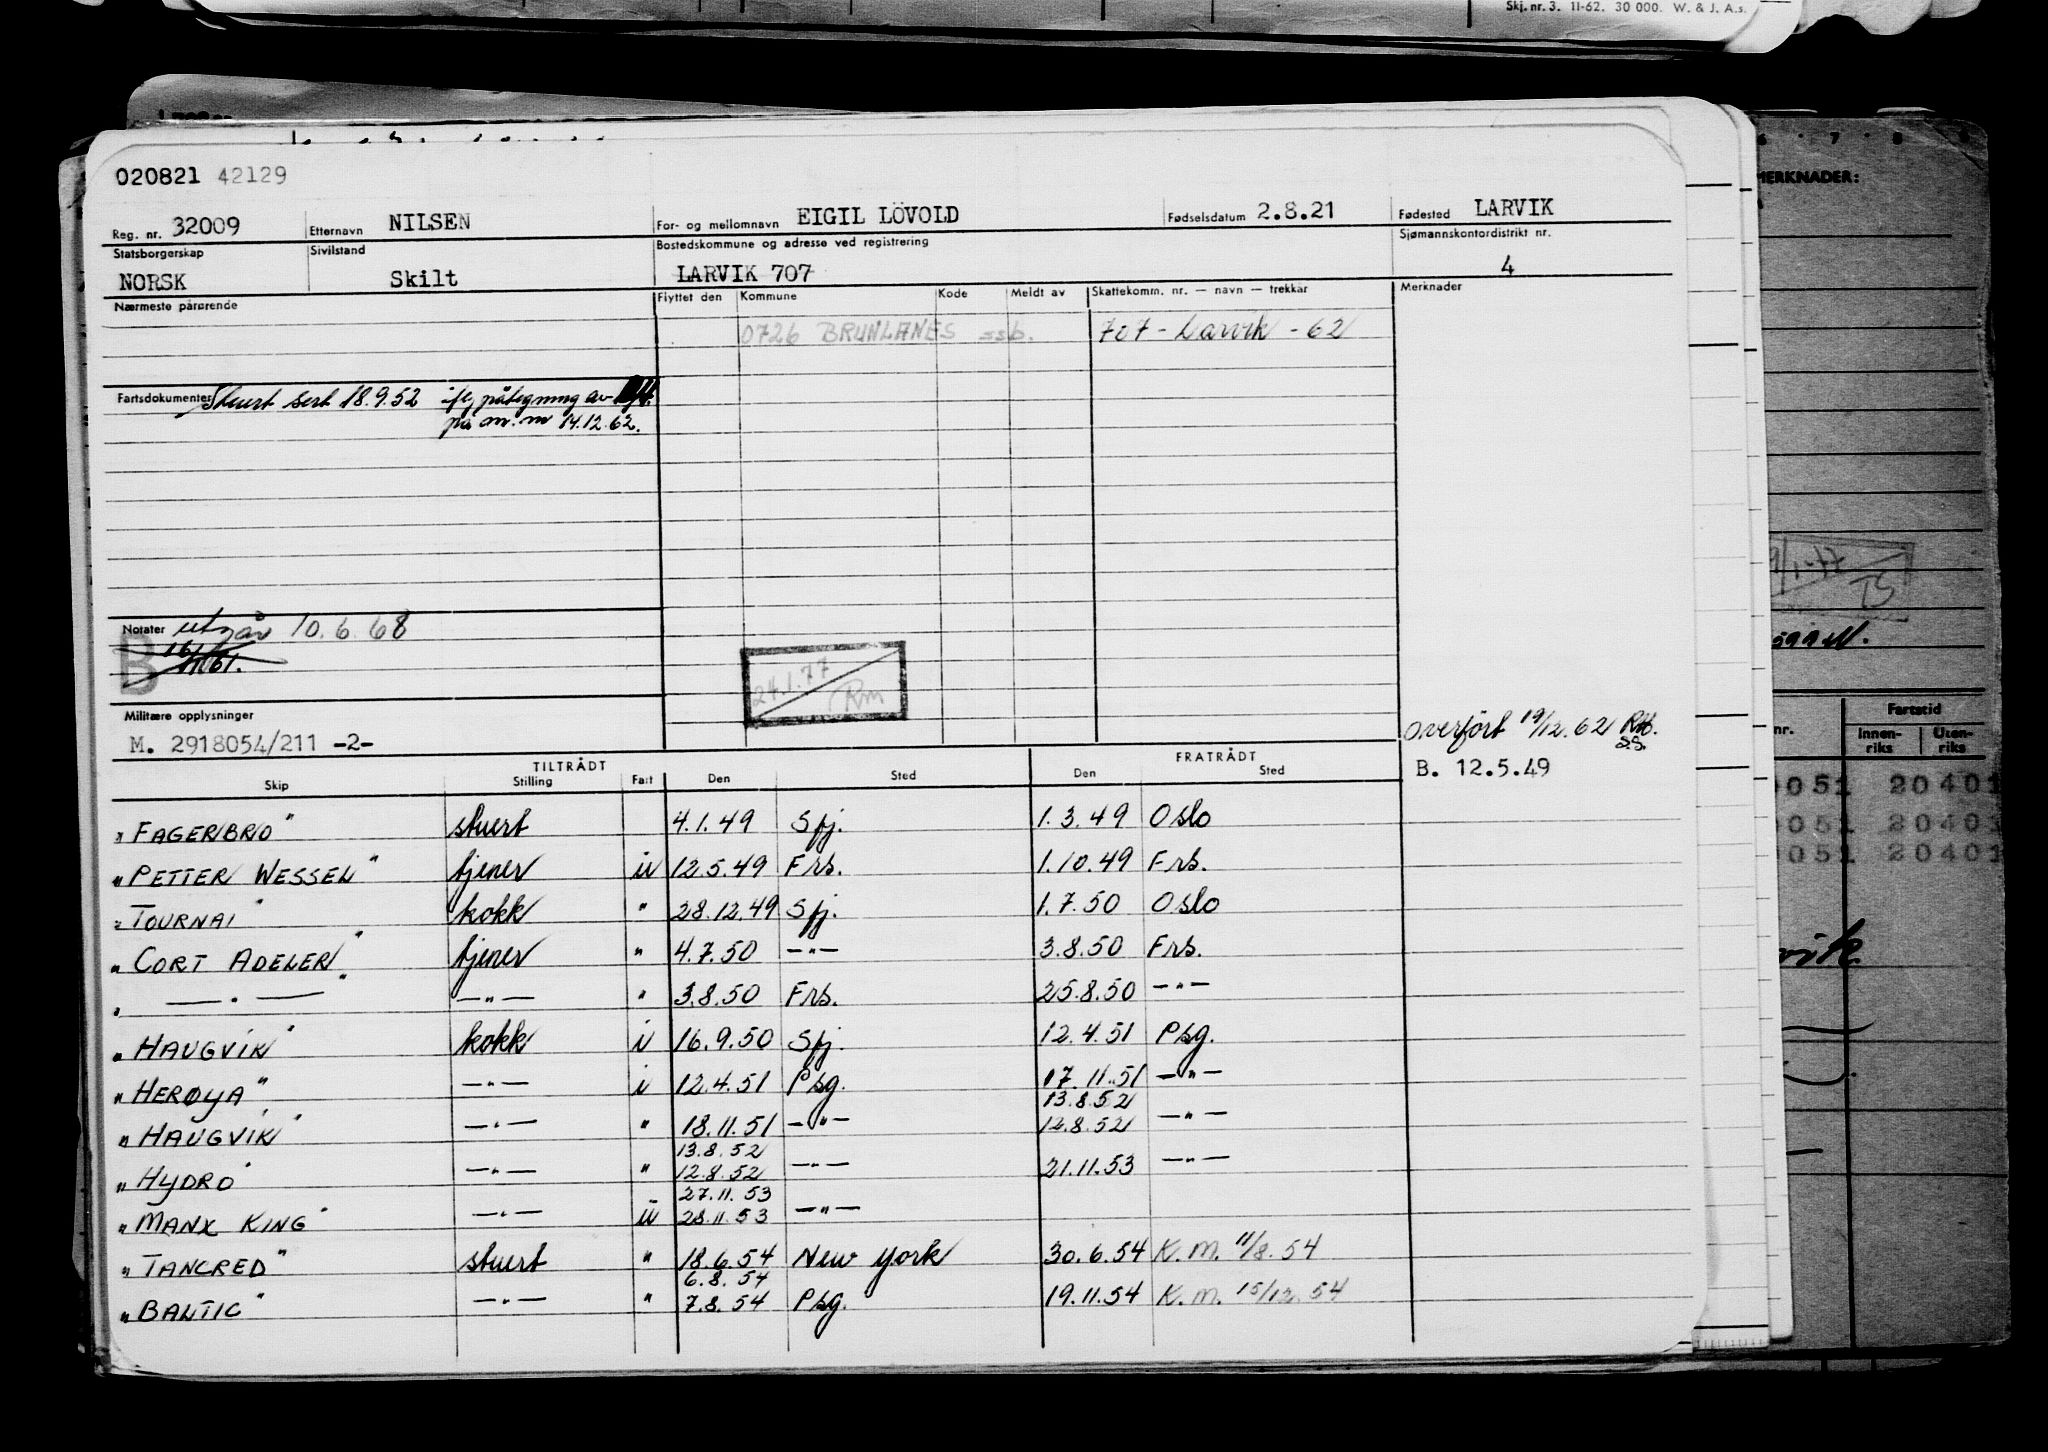 Skj. nr. 3. 11-62. 30 000. W. & J. A.s.
MERKNADER:
020821 42129
Reg. nr. 32009 Etternavn NILSEN For- og mellomnavn EIGIL LÖVOLD Fødselsdatum 2.8.21 Fødested LARVIK
Statsborgerskap Sivilstand Bostedskommune og adresse ved registrering Sjømannskontordistrikt nr.
NORSK Skilt LARVIK 707 4
Nærmeste pårørende Flyttet den Kommune Kode Meldt av Skattekomm. nr. — navn — trekkår Merknader
0726 BRUNLANES ssb. 707 - Larvik - 62
Fartsdokumenter Stuert sert 18.9.52 ifl. påtegning av
på m. m 14.12.62.
Notater utgår 10.6.68
B
24.1.77
Rm
Militære opplysninger
M. 2918054/211 -2-
overført 19/12.62 RM.
S.S.
B. 12.5.49
TILTRÅDT FRATRÅDT
Skip Stilling Fart Den Sted Den Sted
" FAGERBRO " stuert 4.1.49 Spj. 1.3.49 Oslo
" PETTER WESSEL " tjener u 12.5.49 Frs. 1.10.49 Frs.
" TOURNAI " kokk " 28.12.49 Spj. 1.7.50 Oslo
" CORT ADELER " tjener " 4.7.50 —"— 3.8.50 Frs.
" —"— " —"— " 3.8.50 Frs. 25.8.50 —"—
" HAUGVIK " kokk i 16.9.50 Spj. 12.4.51 Psg.
" HERØYA " —"— i 12.4.51 Psg. 17.11.51 —"—
13.8.52
" HAUGVIK " —"— " 18.11.51 —"— 12.8.52 —"—
13.8.52
" HYDRO " —"— " 12.8.52 —"— 21.11.53 —"—
27.11.53
" MANX KING " —"— u 28.11.53 —"—
" TANCRED " stuert " 18.6.54 New York 30.6.54 K.M. 11/8.54
6.8.54
" BALTIC " —"— " 7.8.54 Psg. 19.11.54 K.M. 15/12.54
nr. Fartstid
Innen-riks Uten-riks
0051 20401
0051 20401
0051 20401